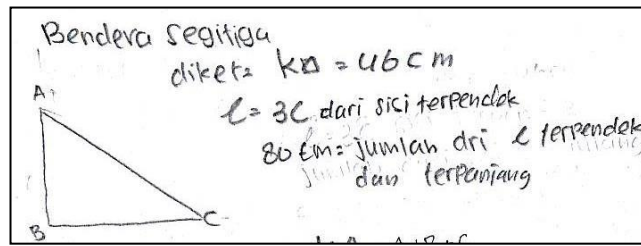 Bendera segitiga
diket = k△ = 46 cm
l = 3l dari sici terpendek
80 cm = jumlah dri l terpendek
dan terpanjang
A
B
C